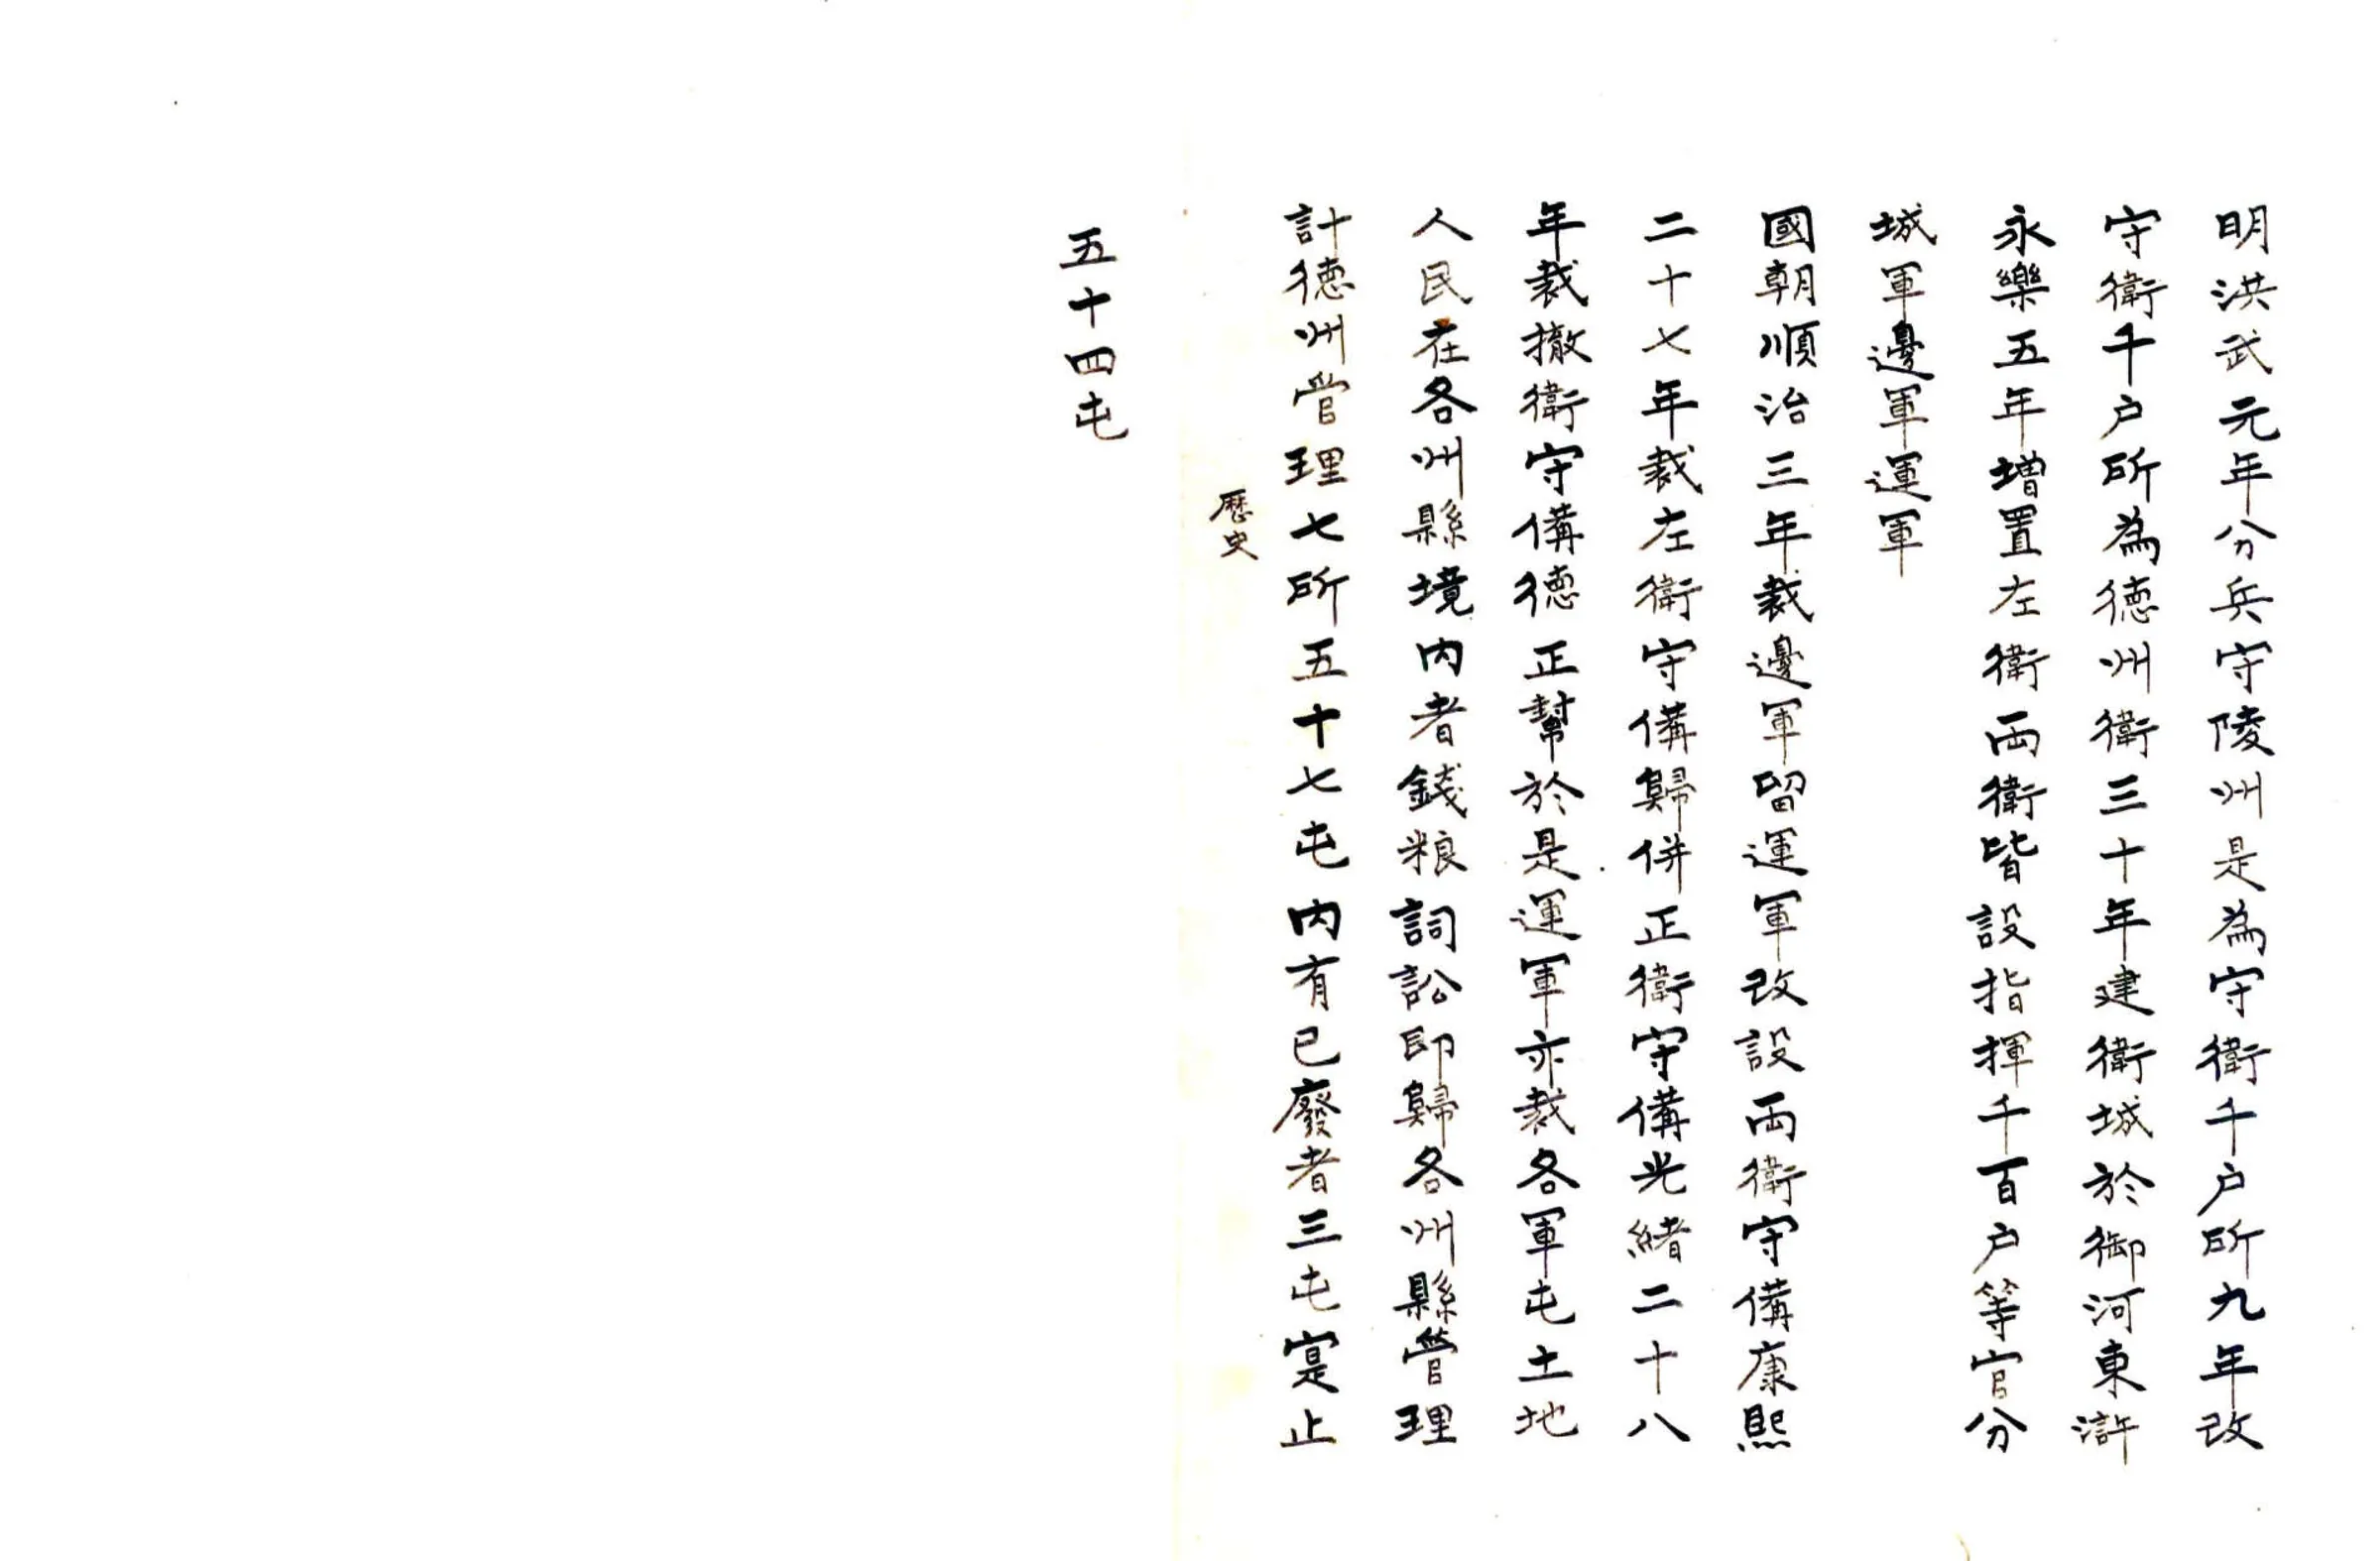 明洪武元年分兵守陵州是為守衛千户所九年改
守衛千户所為德州衛三十年建衛城於御河東滸
永樂五年增置左衛両衛皆設指揮千百户等官分
城軍邊軍運軍
國朝順治三年裁邊軍留運軍改設両衛守備康熙
二十七年裁左衛守備歸併正衛守備光緒二十八
年裁撤衛守備德正幫於是運軍亦裁各軍屯土地
人民在各州縣境内者錢粮詞訟即歸各州縣管理
計德州管理七所五十七屯内有已廢者三屯寔止
歷史
五十四屯